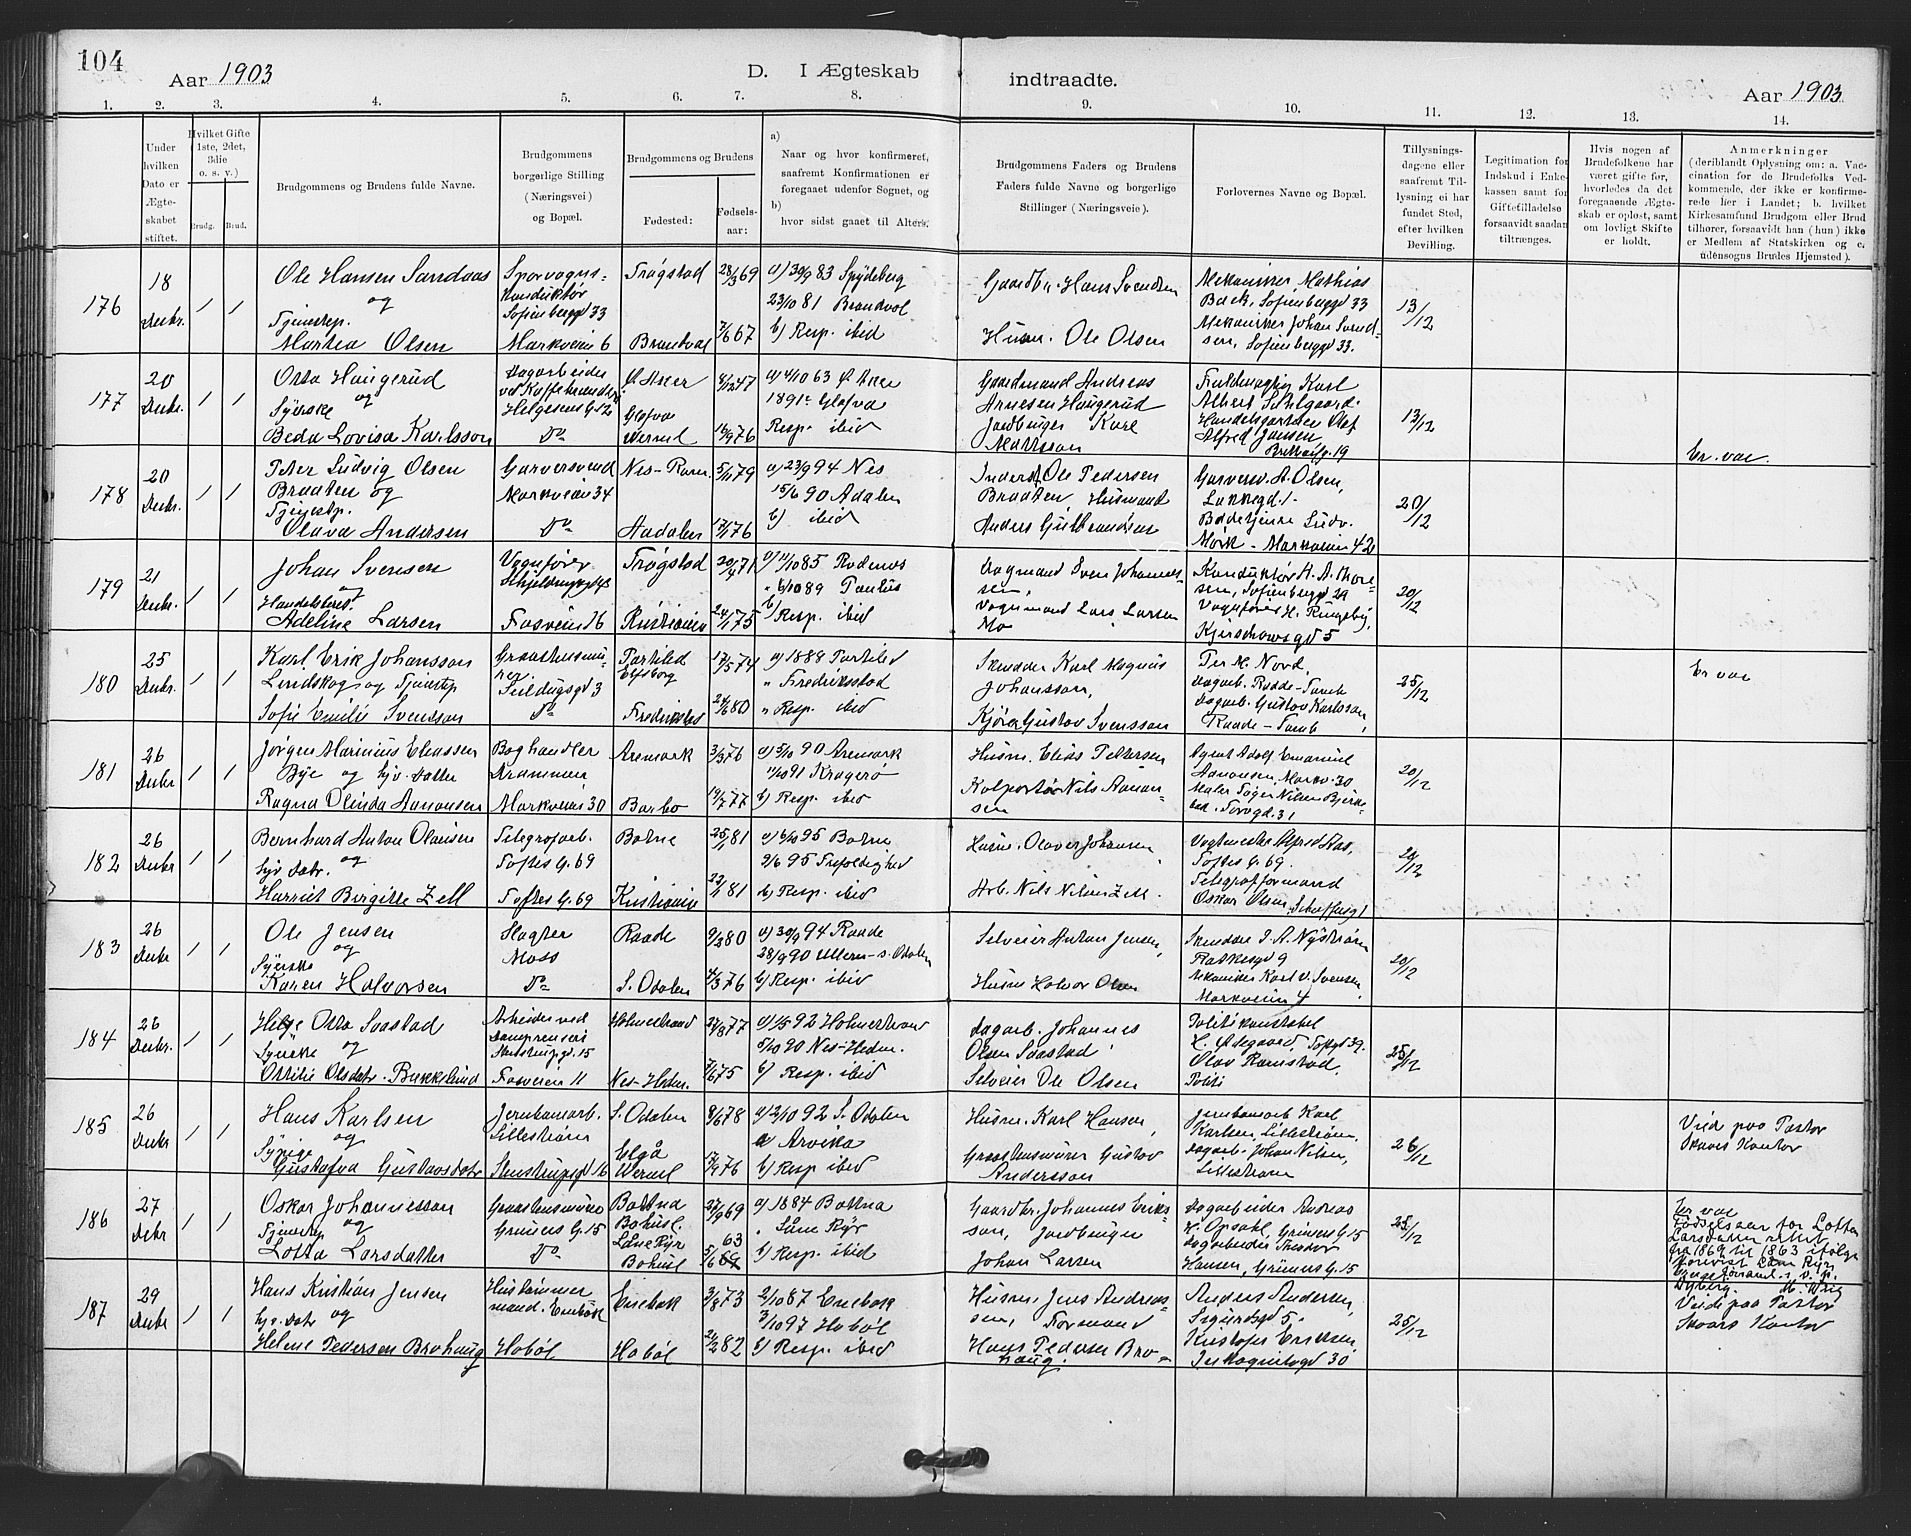 104
Aar 1903
D. I Ægteskab indtraadte.
Aar 1903
1. 2. 3. 4. 5. 6. 7. 8. 9. 10. 11. 12. 13. 14.
Under hvilken Dato er Ægteskabet stiftet.
Hvilket Gifte (1ste, 2det, 3die o. s. v.)
Brudg. Brud.
Brudgommens og Brudens fulde Navne.
Brudgommens borgerlige Stilling (Næringsvei) og Bopæl.
Brudgommens og Brudens
Fødested:
Fødselsaar:
a) Naar og hvor konfirmeret, saafremt Konfirmationen er foregaaet udenfor Sognet, og
b) hvor sidst gaaet til Alters.
Brudgommens Faders og Brudens Faders fulde Navne og borgerlige Stillinger (Næringsveie).
Forlovernes Navne og Bopæl.
Tillysningsdagene eller saafremt Tillysning ei har fundet Sted, efter hvilken Bevilling.
Legitimation for Indskud i Enkekassen samt for Giftefilladelse forsaavidt saadan tiltrænges.
Hvis nogen af Brudefolkene har været gifte før, hvorledes da det foregaaende Ægteskab er opløst, samt om lovligt Skifte er holdt.
Anmerkninger (deriblandt Oplysning om: a. Vaccination for de Brudefolks Vedkommende, der ikke er konfirmerede her i Landet; b. hvilket Kirkesamfund Brudgom eller Brud tilhører, forsaavidt han (hun) ikke er Medlem af Statskirken og c. udensogns Brudes Hjemsted).
176
18 Decbr.
1 1
Ole Hansen Sandaas
og
Tjenestep.
Martea Olsen
Sporvogns-
Konduktør
Sofienbergg 33
Markveien 6
Trøgstad
Brandval
28/3 69
7/6 67
a) 30/9 83 Spydeberg
23/10 81 Brandvol
b) Resp. ibid
Gaardbr. Hans Svendsen
Husm. Ole Olsen
Mekaniker Mathias
Back, Sofienbergg 33
Mekaniker Johan Svend-
sen, Sofienbergg 33.
13/12
177
20 Decbr.
1 1
Otto Haugerud
og
Syerske
Beda Lovisa Karlsson
Dagarbeider
Helgesens G. 12
Do
Ø. Aker
Glafva
Werml
8/12 47
16/9 76
a) 4/10 63 Ø. Aker
1891 Glafva
Resp. ibid
Gaardmand Andreas
Arnesen Haugerud
Jordbruger Karl
Mattsson
Albert
Handelsgartner Olaf
Alfred Jansen,
13/12
Er. vac.
178
20 Decbr.
1 1
Peter Ludvig Olsen
Braaten og
Tjenestp.
Olava Andersen
Garversvend
Markveien 34
Do
Nes-Rom.
Aadalen
5/11 79
17/1 76
a) 23/9 94 Nes
15/6 90 Adalen
b) ibid
Inderst Ole Pedersen
Braaten, Husmand
Anders Gulbrandsen
Garversv. A. Olsen,
Lakkegd. 1.
Bødker Ludv.
Mørk - Markveien 42
20/12
179
21 Decbr.
1 1
Johan Svensen
og
Handelsbest.
Adeline Larsen
Vognfører
Fosveien 16
Trøgstad
Kristiania
20/4 71
24/1 75
a) 11/10 85 Rødenes
" 6/10 89 Paulus
b) Resp. ibid
Dagmand Sven Johannes-
sen,
Vognmand Lars Larsen
Mo
Konduktør H. A. Thore-
sen, Sofienbergg 29
Vognfører H. Ringeby,
Kjerschowsgd 5
20/12
180
25 Decbr.
1 1
Karl Erik Johansson
Lindskog og Tjenestep
Sofie Emilie Svensson
Seildugsgd 3
Do
Partiled
Elfsborg
Fredrikstad
17/5 74
24/6 80
a) 1888 Partiled
" Fredrikstad
" Resp. ibid
Skrædder Karl Magnus
Johansson,
Kjører Gustav Svensson
Per M. Nord,
Dagarb. Raade-Tomb
Dagarb. Gustav Karlsson,
Raade-Tomb
25/12
Er vac
181
26 Decbr
1 1
Jørgen Marinius Eliassen
Bye og Hjv. Datter
Ragna Olinda Aanonsen
Boghandler
Drammen
Markveien 30
Aremark
Barbo
3/3 76
19/7 77
a) 5/10 90 Aremark
11/10 91 Kragerø
b) Resp. ibid
Husm. Elias Pettersen
Kolportør Nils Aanon-
sen
Agent Adolf Emanuel
Aanonsen, Markv. 30
Maler Tøger Nilsen Bjerke-
bæk. Torvgd. 31
20/12
182
26 Decbr
1 1
Bernhard Anton Olausen
og
Hjv Datr.
Harriet Birgitte Zell
Telegrafarb.
Toftes G. 69
Toftes G. 69
Botne
Kristiania
25/1 81
22/11 81
a) 6/10 95 Botne
9/6 95 Trefoldighed
b) Resp. ibid
Husm. Olaves Johansen,
Arb. Nils Nilsen Zell.
Toftes G. 69.
Telegrafformand
Oskar Olsen,
20/12
183
26 Decbr
1 1
Ole Jensen
og
Syerske
Karen Halvorsen
Slagter
Moss
Do
Raade
S. Odalen
9/3 80
4/3 76
a) 30/9 94 Raade
28/9 90 Ullern-S. Odalen
b) Resp. ibid
Selveier Anton Jensen,
Husm Halvor Olsen
Skrædder J. A. Nystrøm
Flaskegd 9
Mekaniker Karl V. Svensen,
Markveien 4
20/12
184
26 Decbr.
1 1
Helge Otto Svastad
og
Syerske
Ottilie Olsdatr. Bækkelund
Arbeider ved
Stenstrupgd. 15
Fosveien 11
Holmestrand
Nes-Hedm.
27/8 77
7/6 75
a) 1/5 92 Holmestrand
5/10 90 Nes-Hedm.
b) Resp. ibid
Dagarb. Johannes
Olsen Svastad
Selveier Ole Olsen
Politikonstabel
H. Ødegaard, Toftgd 39.
Olav Ramstad
Politi
25/12
185
26 Decbr
1 1
Hans Karlsen
og
Gustafva Gustavsdatr
Jernbanearb.
Lillestrøm
Stenstrupgd 16
S. Odalen
Elgå
Werml
8/6 78
17/9 76
a) 2/10 92 S. Odalen
a Arvika
b) Resp ibid
Husm. Karl Hansen,
Grosshusmører Gustav
Andersson
Jernbanearb Karl
Karlsen, Lillestrøm.
Dagarb. Johan Nilsen,
Lillestrøm
26/12
Viede paa Pastor
Skaars Kontor
186
27 Decbr
1 1
Oskar Johannesson
og
Tjenestep
Lotta Larsdatter
Gruners G. 15
Do
Bottna
Bohusl.
Låne Ryr
Bohusl
27/9 69
63
5/6 69
a) 1884 Bottna
" Låne Ryr
b) Resp. ibid
Gaardbr. Johannes Eriks-
son, Jordbruger
Johan Larsen
Dagarbeider Andreas
H. Opsahl, Gruners G. 15
Dagarbeider Theodor
Hansen, Gruners G. 15
25/12
Er vac
Fødselsaar for Lotta
Larsdatter rettet
fra 1869 til 1863 ifølge
187
29 Decbr
1 1
Hans Kristian Jensen
Hjv. Datr og
Helene Pedersen Brohaug
Hustømmer
mand. Enebak
Hobøl
Enebak
Hobøl
3/8 73
21/2 82
2/10 87 Enebak
3/10 97 Hobøl
b) Resp. ibid
Husm. Jens Andreas-
sen, Formand
Hans Pedersen Bro-
haug.
Anders Andersen,
Sigurdsgd 5.
Kristofer Eriksen
Inkognitogd 30
25/12
Viede paa Pastor
Skaars Kontor